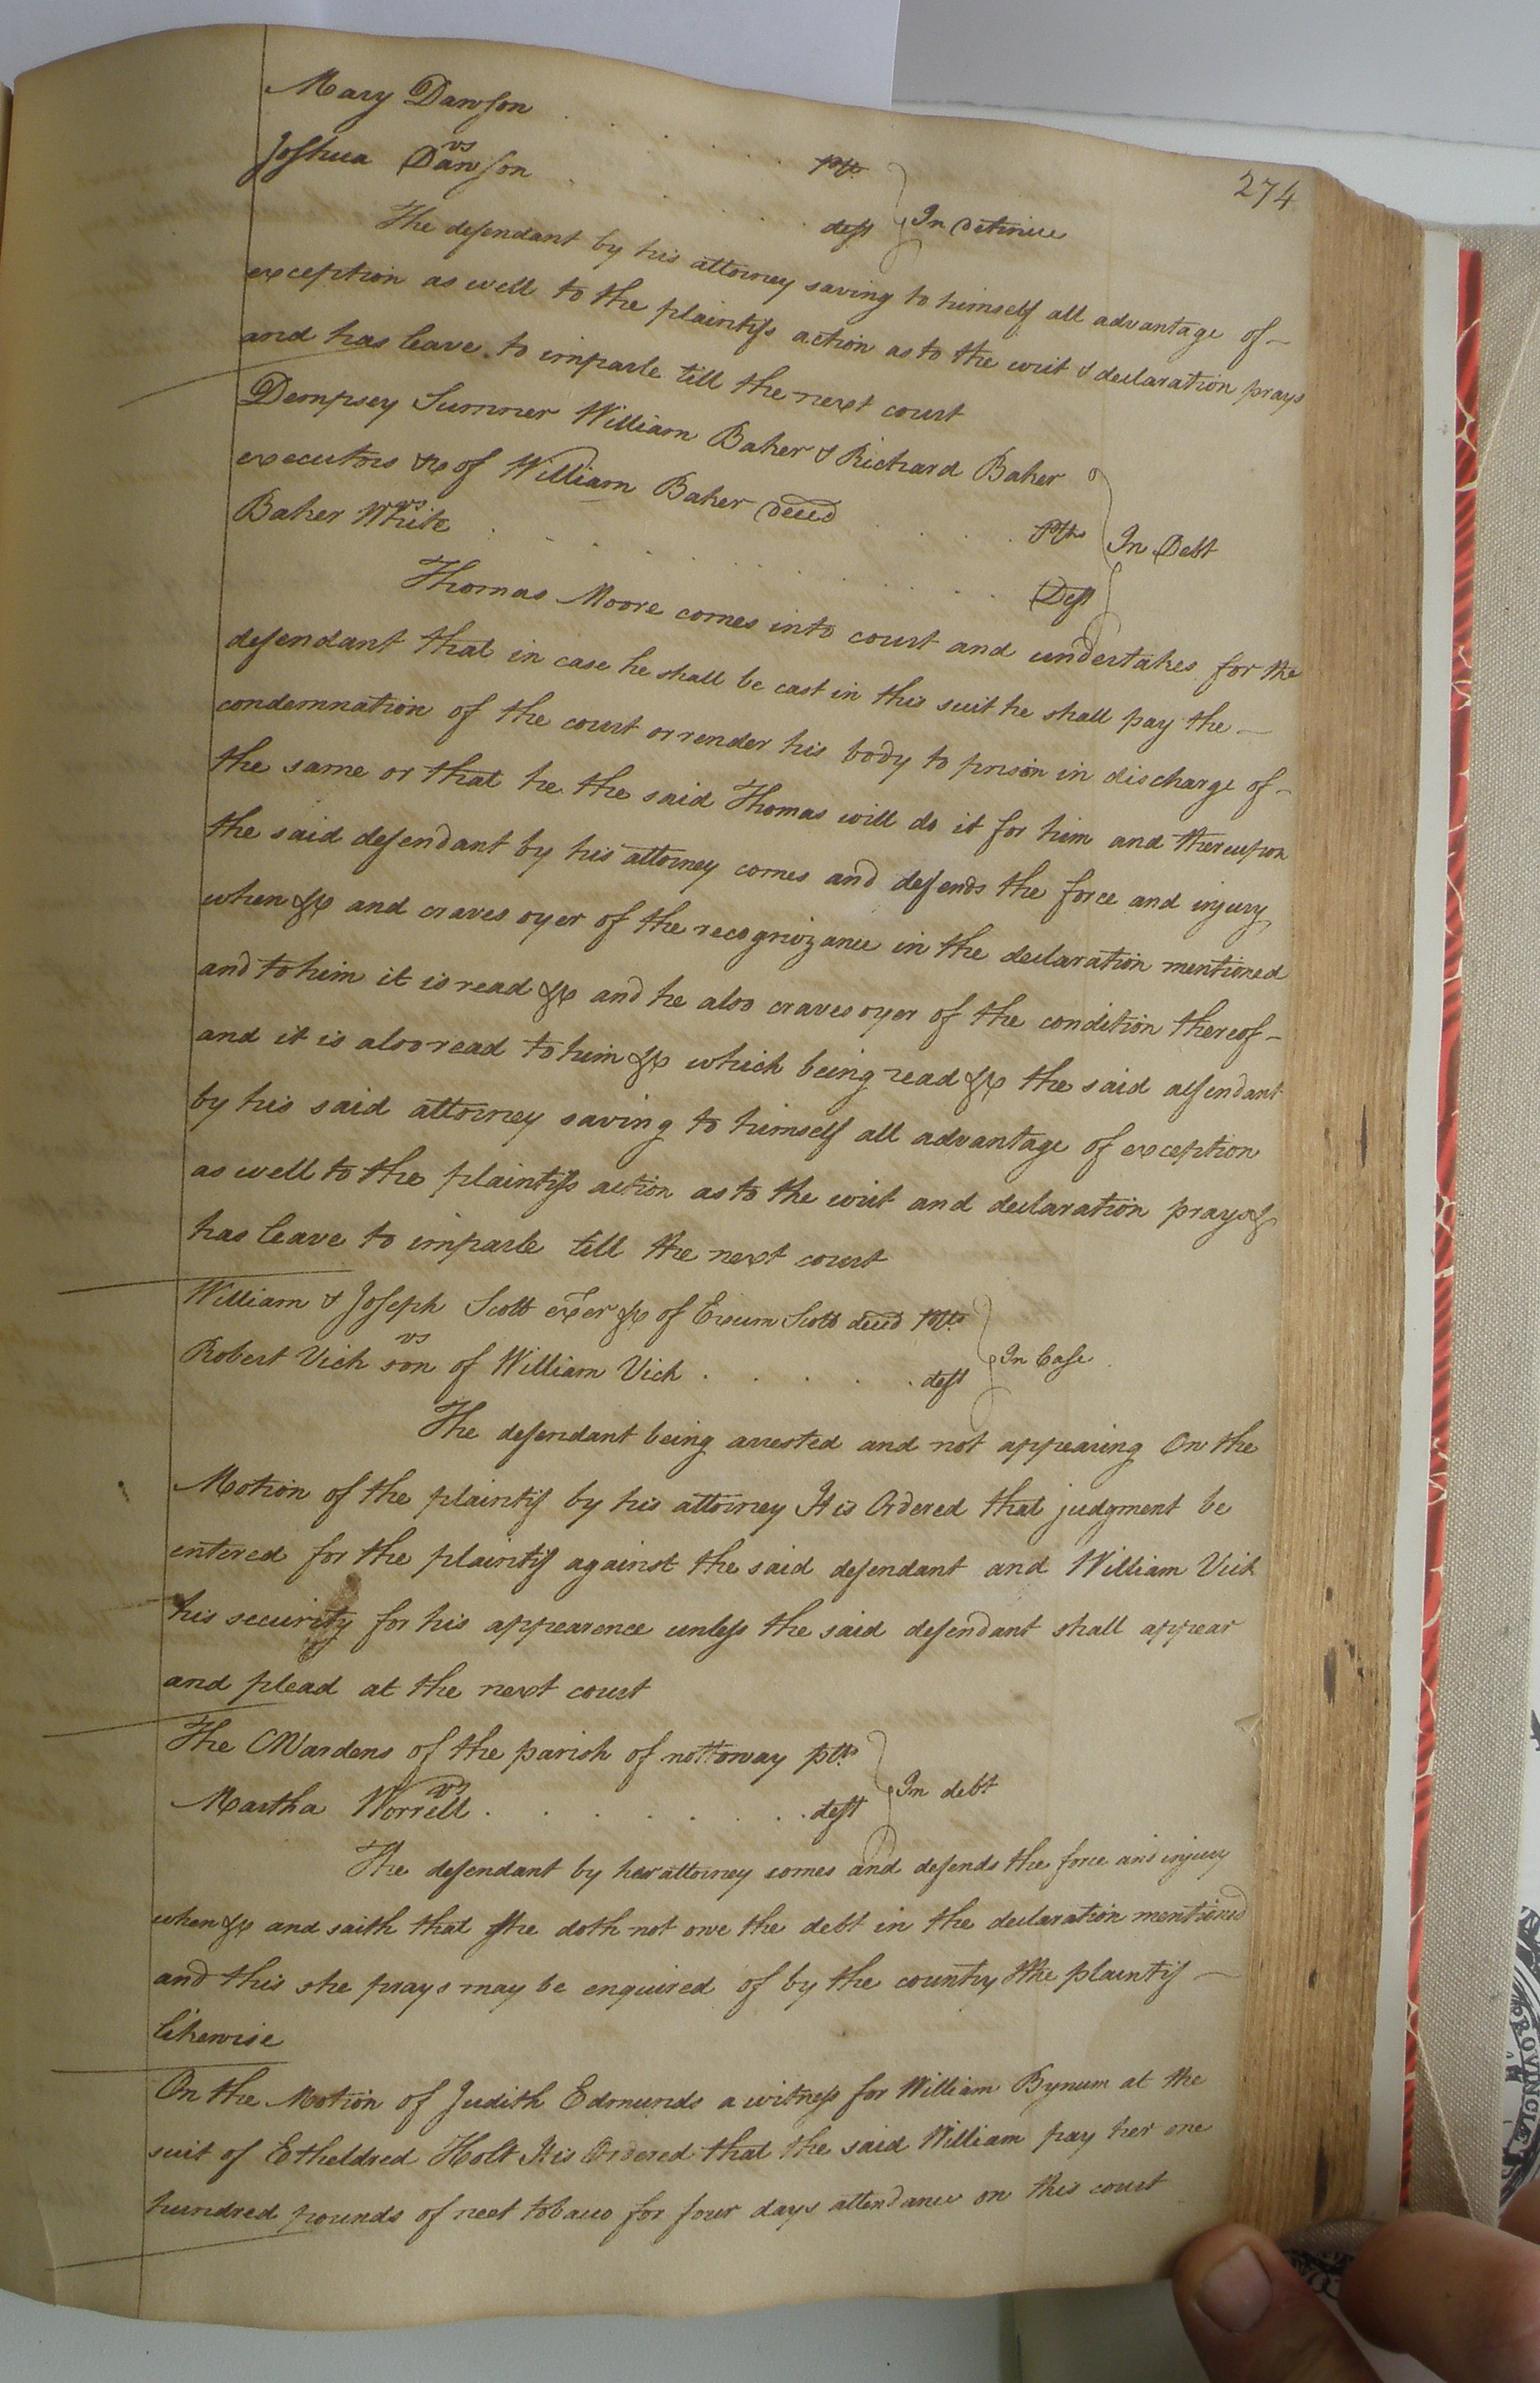 274
Mary Dawson . . . . . Plt
vs
Joshua Dawson . . . . . deft } In Detinue
The defendant by his attorney saving to himself all advantage of
exception as well to the plaintifs action as to the writ & declaration prays
and has leave to imparle till the next court
Dempsey Sumner William Baker & Richard Baker
executors &c of William Baker deced . . . Plts
vs
Baker White . . . . . Deft } In Debt
Thomas Moore comes into court and undertakes for the
defendant that in case he shall be cast in this suit he shall pay the
condemnation of the court or render his body to prison in discharge of
the same or that he the said Thomas will do it for him and thereupon
the said defendant by his attorney comes and defends the force and injury
when &c and craves oyer of the recognizance in the declaration mentioned
and to him it is read &c and he also craves oyer of the condition thereof
and it is also read to him &c which being read &c the said defendant
by his said attorney saving to himself all advantage of exception
as well to the plaintifs action as to the writ and declaration prays &
has leave to imparle till the next court
William & Joseph Scott exer &c of Exum Scott deced Plts
vs
Robert Vick son of William Vick . . . . . deft } In Case
The defendant being arrested and not appearing On the
Motion of the plaintif by his attorney It is Ordered that judgment be
entered for the plaintif against the said defendant and William Vick
his security for his appearence unless the said defendant shall appear
and plead at the next court
The CWardens of the parish of nottoway plts
vs
Martha Worrell . . . . . deft } In debt
The defendant by her attorney comes and defends the force and injury
when &c and saith that she doth not owe the debt in the declaration mentioned
and this she prays may be enquired of by the country & the plaintif
likewise
On the Motion of Judith Edmunds a witness for William Bynum at the
suit of Etheldred Holt It is Ordered that the said William pay her one
hundred pounds of neet tobacco for four days attendance on this court